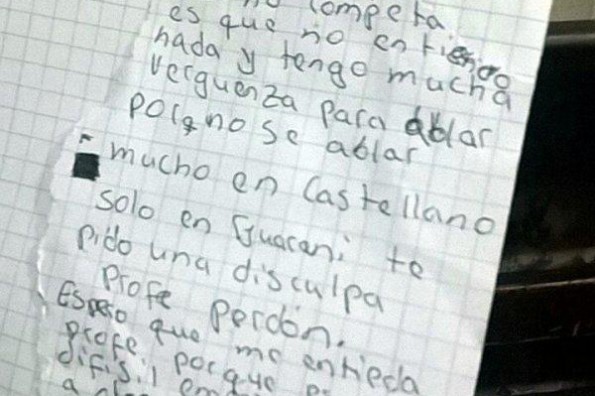 no competa.
es que no entiendo
nada y tengo mucha
verguenza para ablar
porq no se ablar
mucho en Castellano
solo en Guarani te
pido una disculpa
profe perdón.
Espero que me entieda
profe porque
difisil